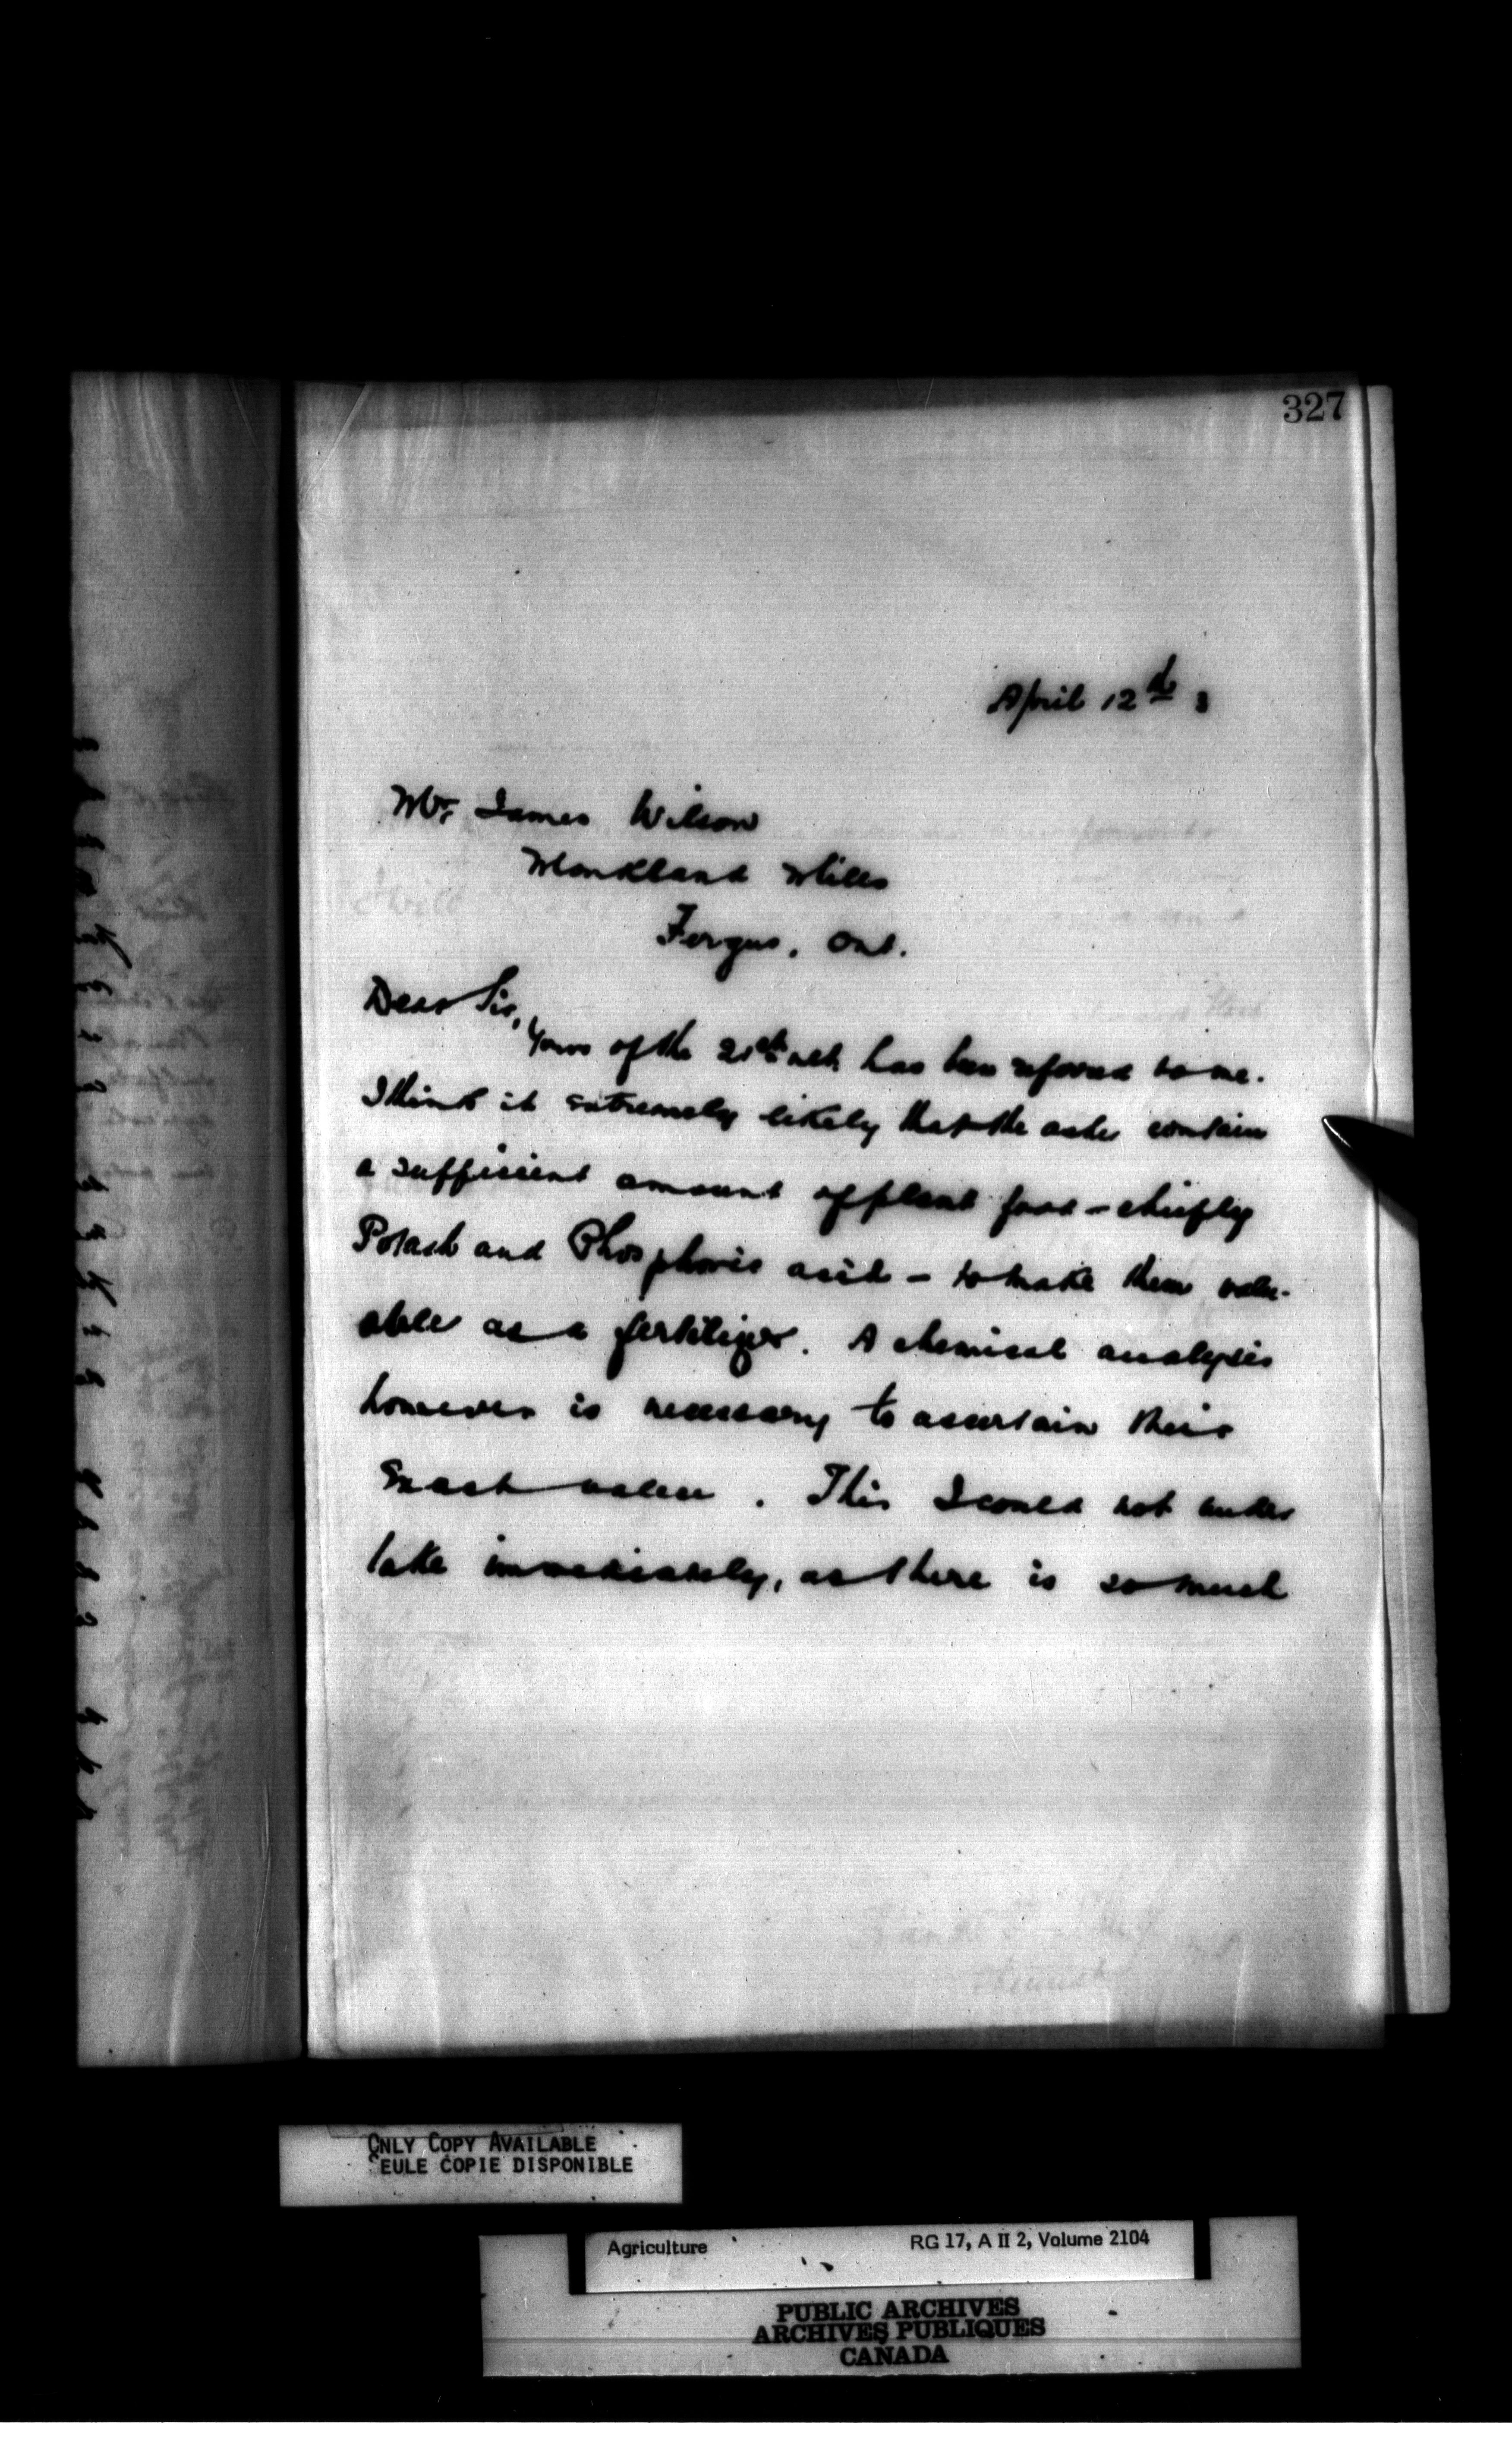 327
April 12th 3
Mr. James Wilson
Monkland Mills
Fergus, Ont.
Dear Sir,
Yours of the 21st ult has been referred to me.
I think it extremely likely that the ashes contain
a sufficient amount of plant food - chiefly
Potash and Phosphoric acid - to make them valu-
able as a fertilizer. A chemical analysis
however is necessary to ascertain their
Exact value. This I could not under
take immediately, as there is so much
ONLY COPY AVAILABLE
SEULE COPIE DISPONIBLE
Agriculture RG 17, A II 2, Volume 2104
PUBLIC ARCHIVES
ARCHIVES PUBLIQUES
CANADA